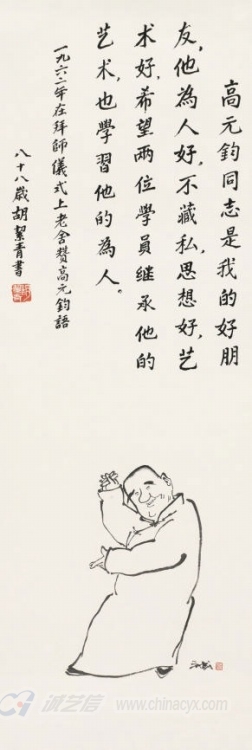 高元鈞同志是我的好朋
友，他為人好，不藏私，思想好，艺
术好，希望两位學員继承他的
艺术，也學習他的為人。
一九六二年在拜師儀式上老舍赞高元鈞語
八十八歲胡絜青書
诚艺信 www.chinacyx.com